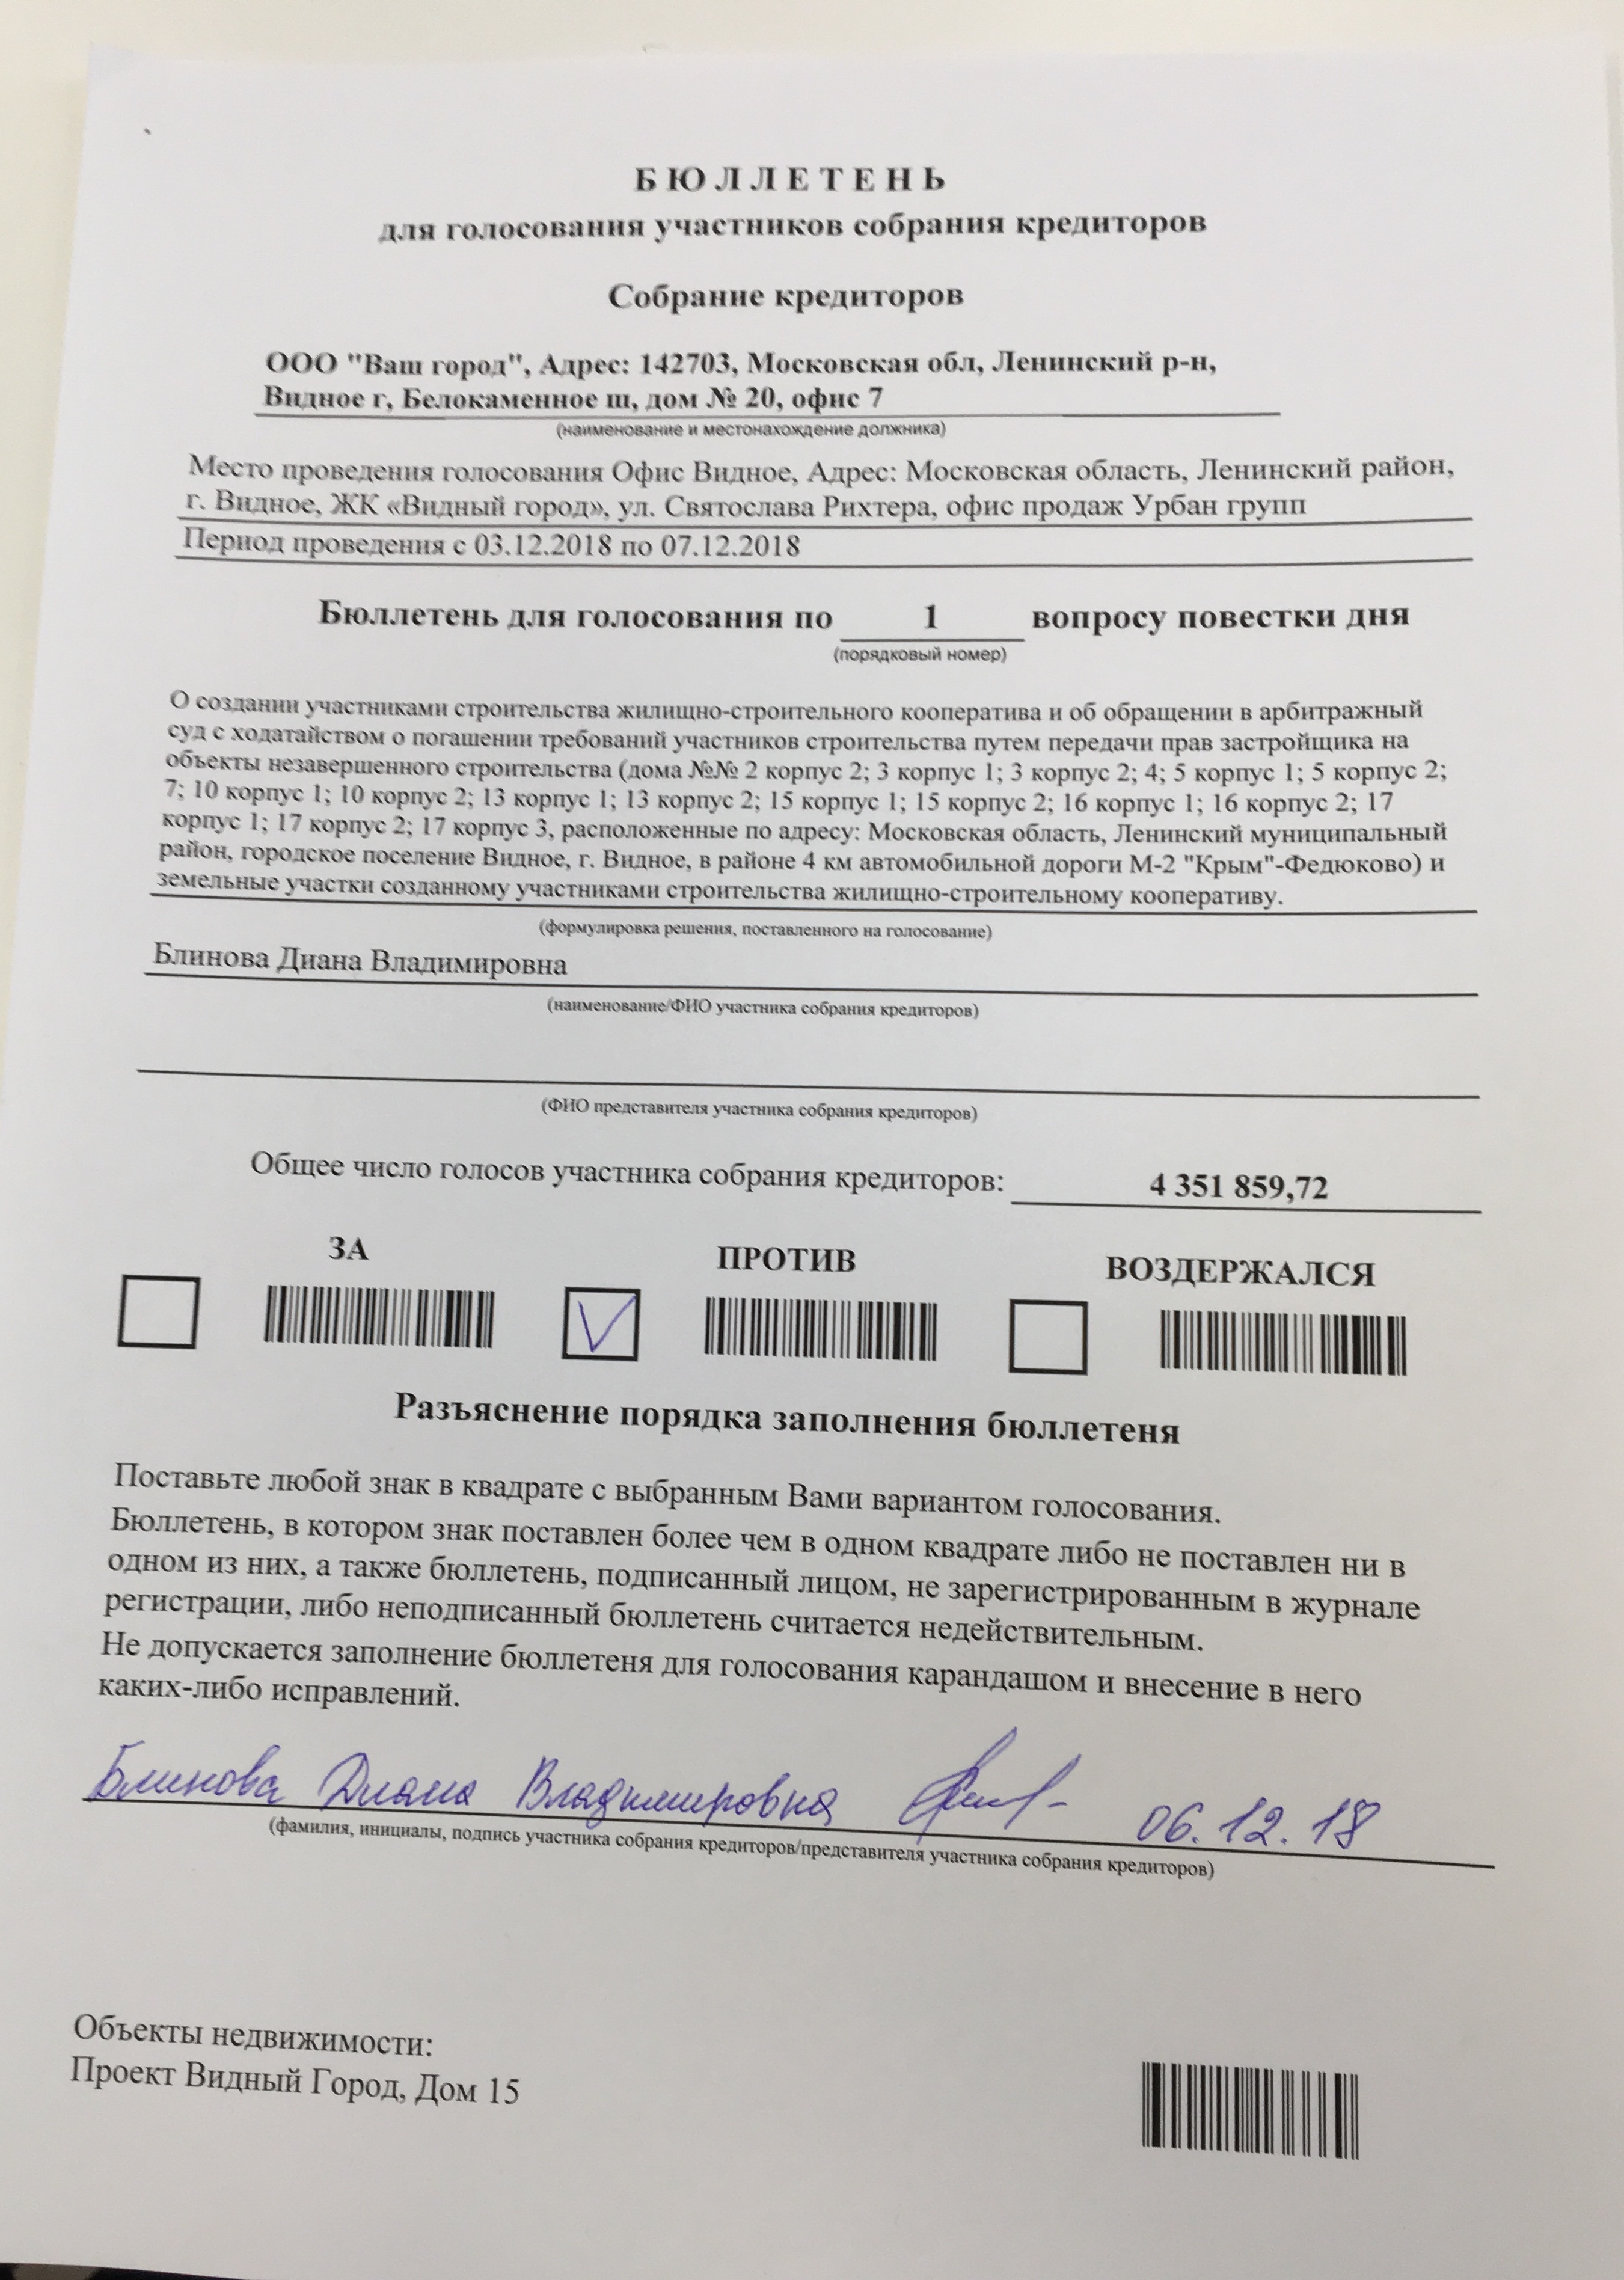 БЮЛЛЕТЕНЬ
для голосования участников собрания кредиторов
Собрание кредиторов
ООО "Ваш город", Адрес: 142703, Московская обл, Ленинский р-н,
Видное г, Белокаменное ш, дом № 20, офис 7
(наименование и местонахождение должника)
Место проведения голосования Офис Видное, Адрес: Московская область, Ленинский район,
г. Видное, ЖК «Видный город», ул. Святослава Рихтера, офис продаж Урбан групп
Период проведения с 03.12.2018 по 07.12.2018
Бюллетень для голосования по 1 вопросу повестки дня
(порядковый номер)
О создании участниками строительства жилищно-строительного кооператива и об обращении в арбитражный
суд с ходатайством о погашении требований участников строительства путем передачи прав застройщика на
объекты незавершенного строительства (дома №№ 2 корпус 2; 3 корпус 1; 3 корпус 2; 4; 5 корпус 1; 5 корпус 2;
7; 10 корпус 1; 10 корпус 2; 13 корпус 1; 13 корпус 2; 15 корпус 1; 15 корпус 2; 16 корпус 1; 16 корпус 2; 17
корпус 1; 17 корпус 2; 17 корпус 3, расположенные по адресу: Московская область, Ленинский муниципальный
район, городское поселение Видное, г. Видное, в районе 4 км автомобильной дороги М-2 "Крым"-Федюково) и
земельные участки созданному участниками строительства жилищно-строительному кооперативу.
(формулировка решения, поставленного на голосование)
Блинова Диана Владимировна
(наименование/ФИО участника собрания кредиторов)
(ФИО представителя участника собрания кредиторов)
Общее число голосов участника собрания кредиторов: 4 351 859,72
ЗА ПРОТИВ ВОЗДЕРЖАЛСЯ
Разъяснение порядка заполнения бюллетеня
Поставьте любой знак в квадрате с выбранным Вами вариантом голосования.
Бюллетень, в котором знак поставлен более чем в одном квадрате либо не поставлен ни в
одном из них, а также бюллетень, подписанный лицом, не зарегистрированным в журнале
регистрации, либо неподписанный бюллетень считается недействительным.
Не допускается заполнение бюллетеня для голосования карандашом и внесение в него
каких-либо исправлений.
Блинова Диана Владимировна 06.12.18
(фамилия, инициалы, подпись участника собрания кредиторов/представителя участника собрания кредиторов)
Объекты недвижимости:
Проект Видный Город, Дом 15